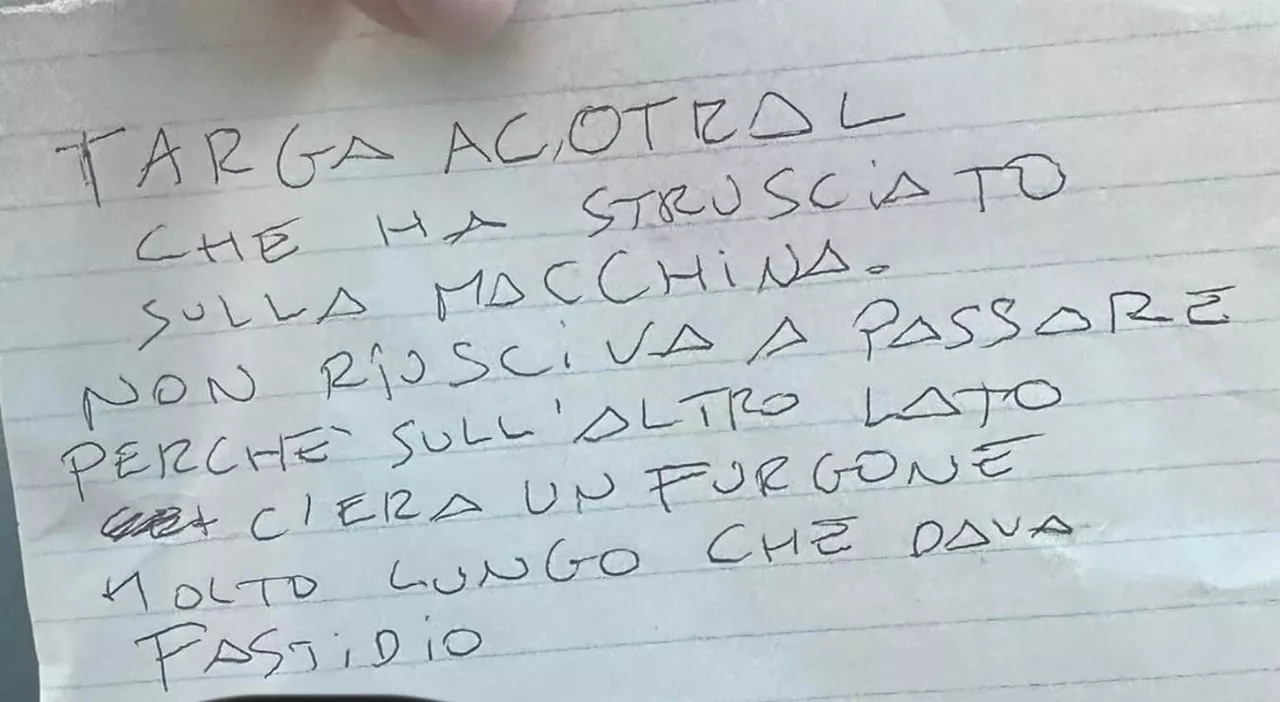 TARGA ACOTRAL
CHE HA STRUSCIATO
SULLA MACCHINA.
NON RIUSCIVA A PASSARE
PERCHE' SULL'ALTRO LATO
C'ERA UN FURGONE
MOLTO LUNGO CHE DAVA
FASTIDIO